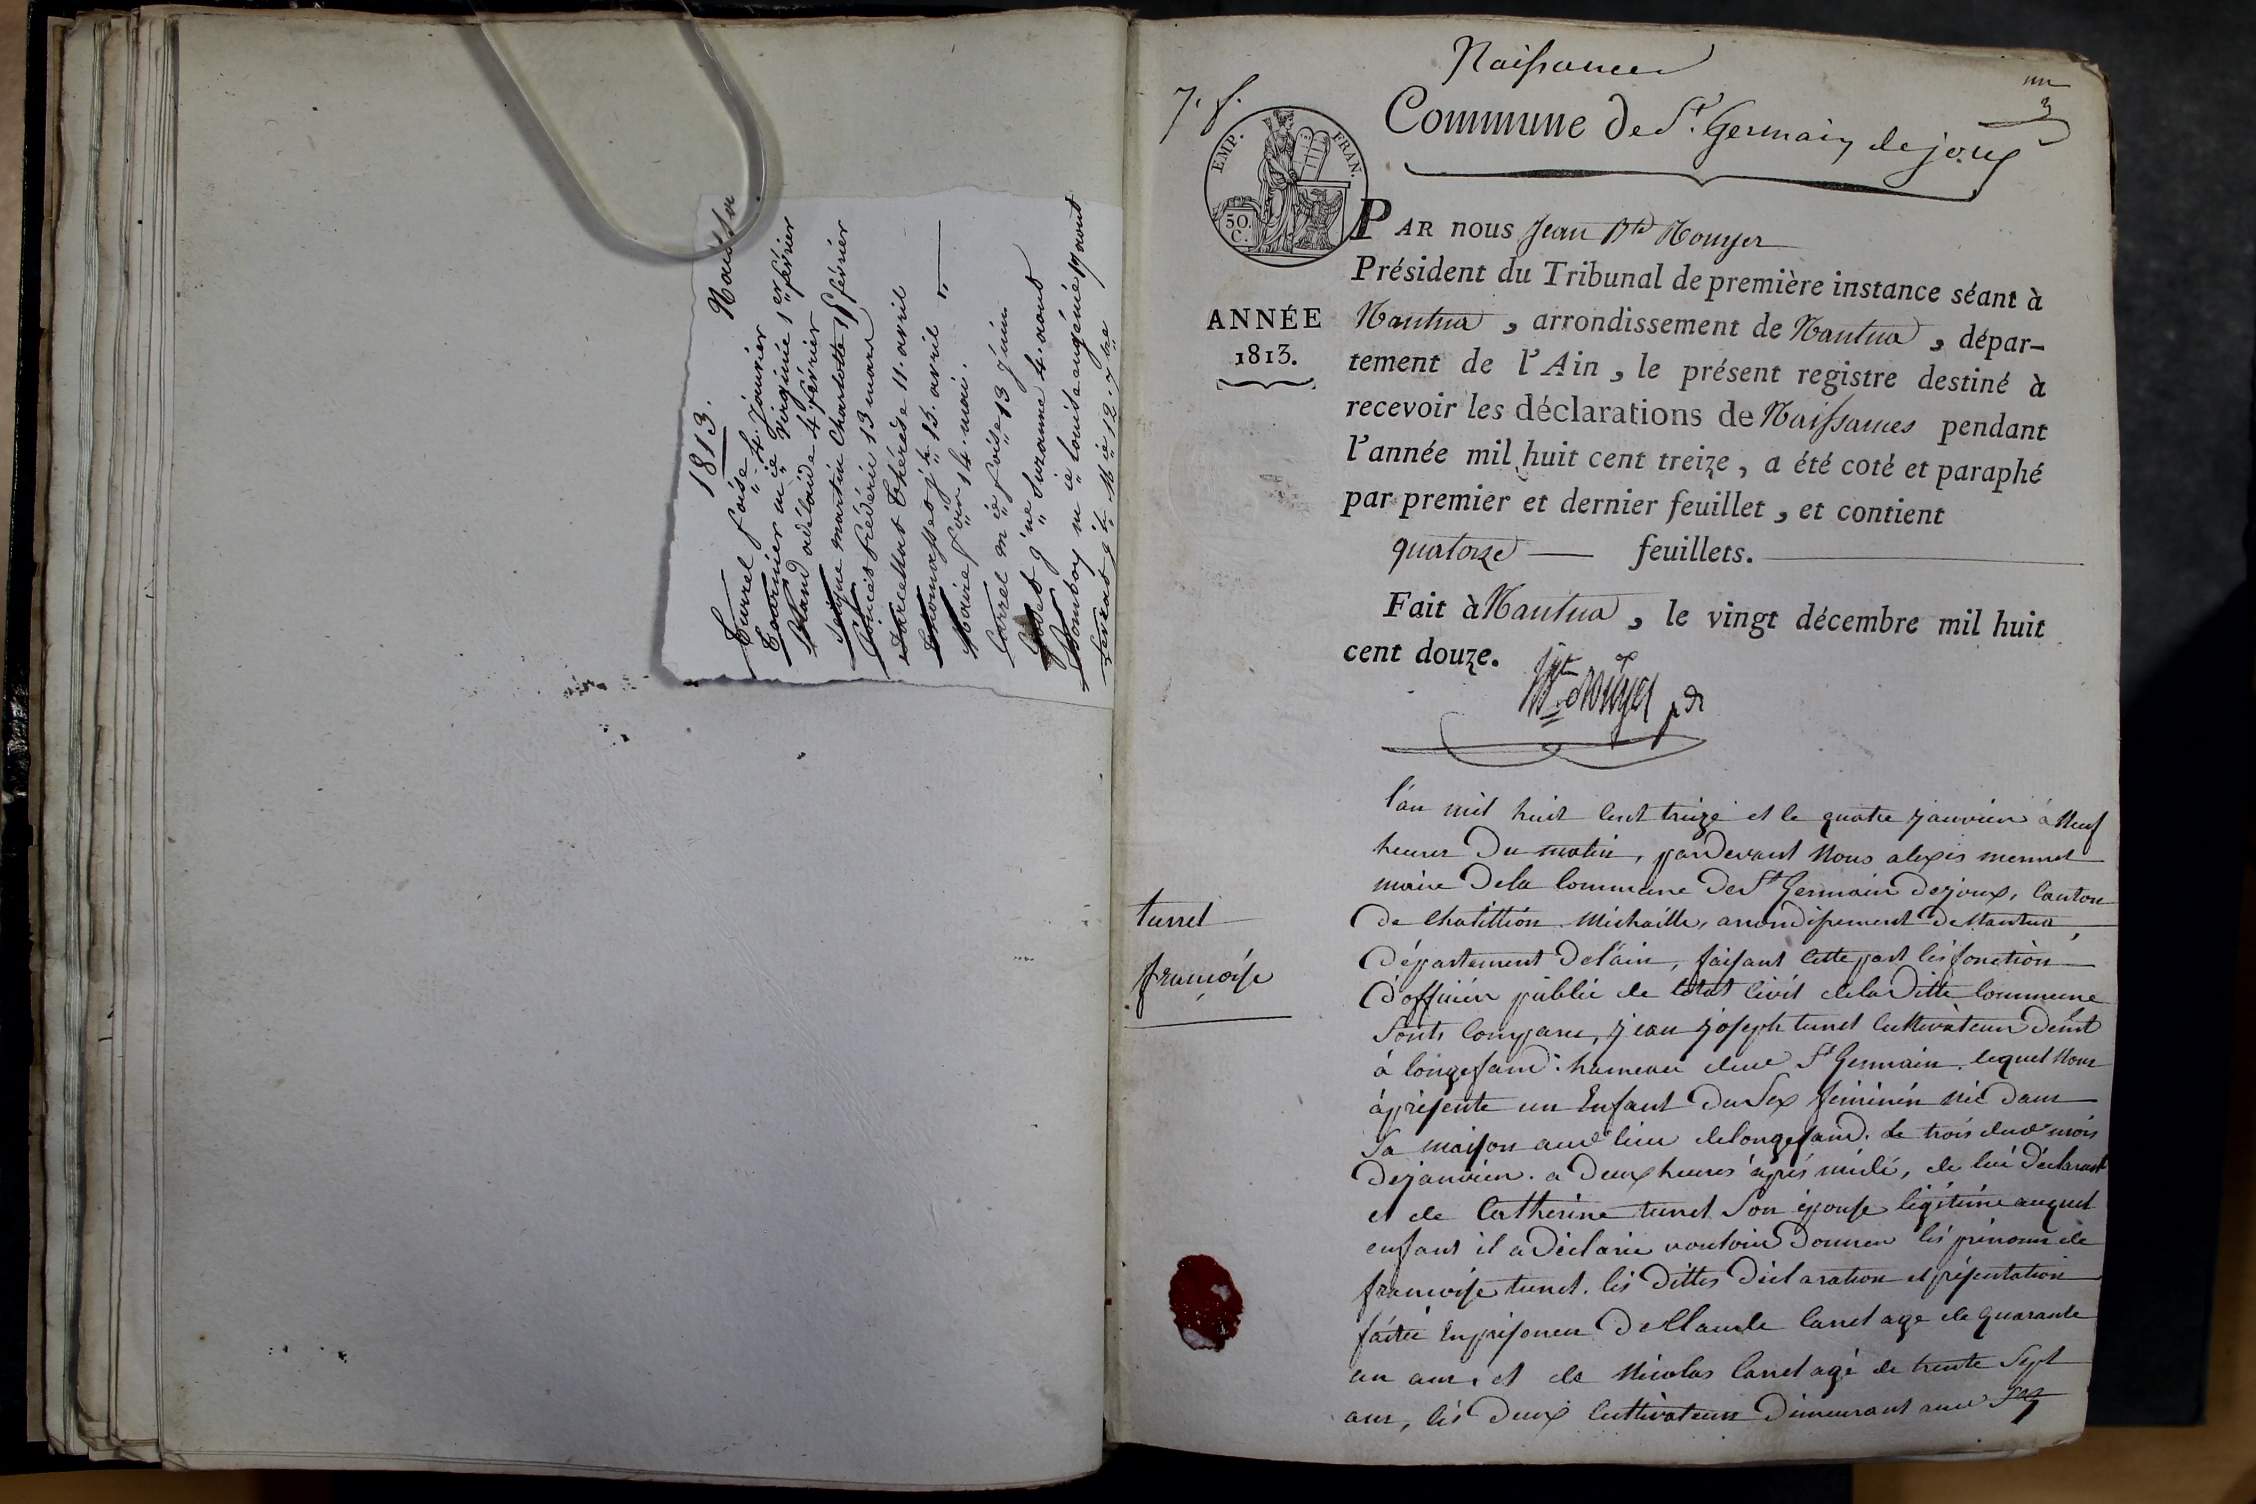 1813. Naiss.ce
Turrel f.oise 4. Janvier
Tournier m.ie Virginie 1.er février
adélaïde 4 février
martin Charlotte 18 février
Poncet frédéric 13 mars
Marcellat Thérèse 11. avril
Thomasset j.h 15. avril
Maire f.ois 14. mai.
Carrel m.ie f.oise 13 juin
Godet j.ne Suzanne 4. aout
m.ie Louise eugénie 17 aout
12. 7bre
Naissances
7. f.
un
Commune de St. Germain de joux
EMP. FRAN.
50. C.
PAR nous Jean Bte Rouyer
Président du Tribunal de première instance séant à
ANNÉE
1813.
Nantua, arrondissement de Nantua, dépar-
tement de l'Ain, le présent registre destiné à
recevoir les déclarations de Naissances pendant
l'année mil huit cent treize, a été coté et paraphé
par premier et dernier feuillet, et contient
quatorze feuillets.
Fait à Nantua, le vingt décembre mil huit
cent douze.
Bte Rouyer pdt
l'an mil huit cent treize et le quatre janvier à Neuf
heures du matin, pardevant Nous alexis mermet
maire dela Commune de St Germain dejoux, Canton
turrel
françoise
de Chatillion Michaille, arrondissement de Nantua,
département delain, faisant cette part les fonction
d'officier publie de létat Civil delaDitte Commune
Sonts Comparu, jean joseph turrel Cultivateur demt
à longefand: hameau dud St Germain. lequel Nous
àprésente un Enfant du Sex féminin née dans
Sa maison aud lieu delongefand. le trois dud mois
dejanvier. a deux heures après midi, de lui déclarant
et de Catherine turrel Son épouse légitime auquel
enfant il a déclarie vouloir donner lés prénoms de
francoise turrel. lés dittes déclaration et présentation
faitte Enprésence de Claude Carrel age de quarante
un ans. et de Nicolas Carrel agé de trente Sept
ans, lés deux Cultivateurs demeurant aud